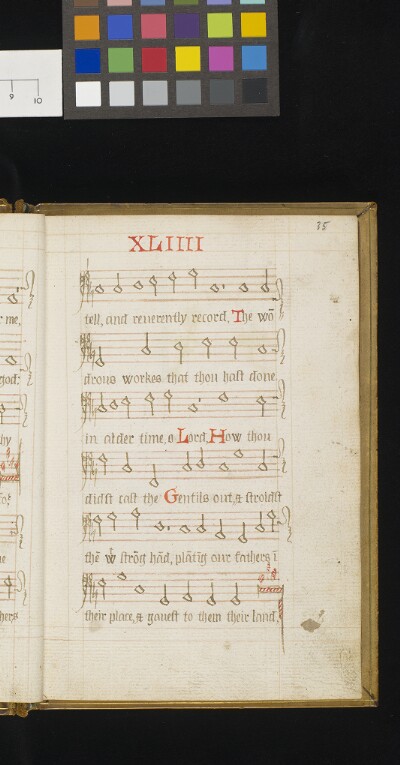 9 10
35
XLIIII
r me,
tell, and reuerently record, The wō
god:
drous workes that thou hast done
hy
in alder time, o Lord, How thou
didst cast the Gentils out, & stroidst
thē wͭ strōg hād, plātīg our fathers ī
hers
their place, & gauest to them their land,